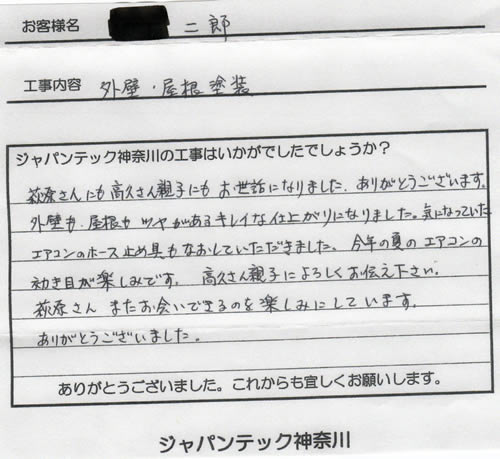 お客様名 二郎
工事内容 外壁・屋根塗装
ジャパンテック神奈川の工事はいかがでしたでしょうか？
萩原さんにも高久さん親子にもお世話になりました。ありがとうございます。
外壁も、屋根もツヤがあるキレイな仕上がりになりました。気になっていた
エアコンのホース止め具もなおしていただきました、今年の夏のエアコンの
効き目が楽しみです。高久さん親子によろしくお伝え下さい。
萩原さん またお会いできるのを楽しみにしています。
ありがとうございました。
ありがとうございました。これからも宜しくお願いします。
ジャパンテック神奈川